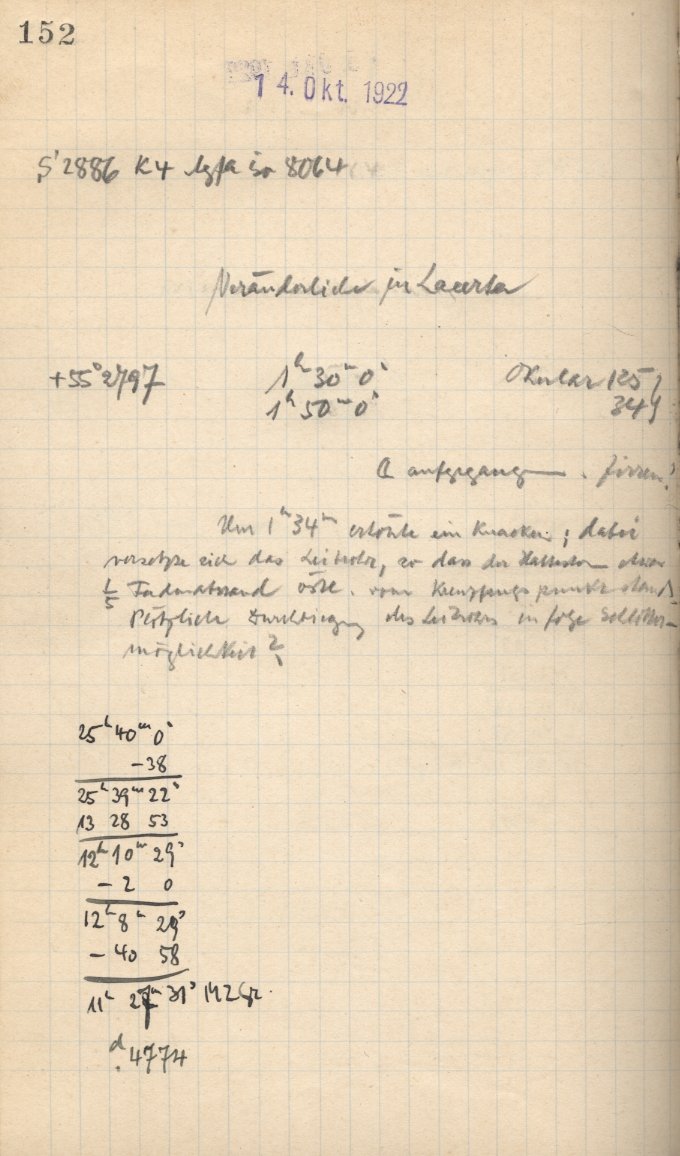 152
14. Okt. 1922
S 2886 K4 Agfa iso 8064
Veränderliche in Lacerta
+55° 2797 1ʰ 30ᵐ 0ˢ Okular 125
1ʰ 50ᵐ 0ˢ 34
☾ aufgegangen.
Um 1ʰ 34ᵐ ertönte ein Knacken; dabei
versetzte sich das Leitrohr, so dass der Haltestern etwa
1/5 Fadenabstand östl. vom Kreuzungspunkt stand
Plötzliche Durchbiegung des Leitrohrs in folge Schlotter-
möglichkeit?
25ʰ 40ᵐ 0ˢ
-38
25ʰ 39ᵐ 22ˢ
13 28 53
12ʰ 10ᵐ 29ˢ
- 2 0
12ʰ 8ᵐ 29ˢ
- 40 58
11ʰ 27ᵐ 31ˢ MEZ
ᵈ.4774